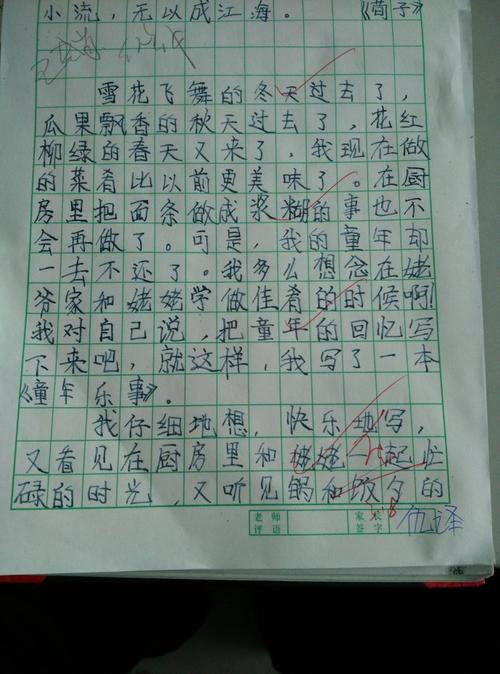 小流，无以成江海。 《荀子》
雪花飞舞的冬天过去了，
瓜果飘香的秋天过去了，花红
柳绿的春天又来了，我现在做
的菜肴比以前更美味了。在厨
房里把面条做成浆糊的事也不
会再做了。可是，我的童年却
一去不还了。我多么想念在姥
爷家和姥姥学做佳肴的时候啊！
我对自己说，把童年的回忆写
下来吧，就这样，我写了一本
《童年乐事》。
我仔细地想，快乐地写，
又看见在厨房里和姥姥一起忙
碌的时光，又听见锅和饭勺的
老师评语
家长签字